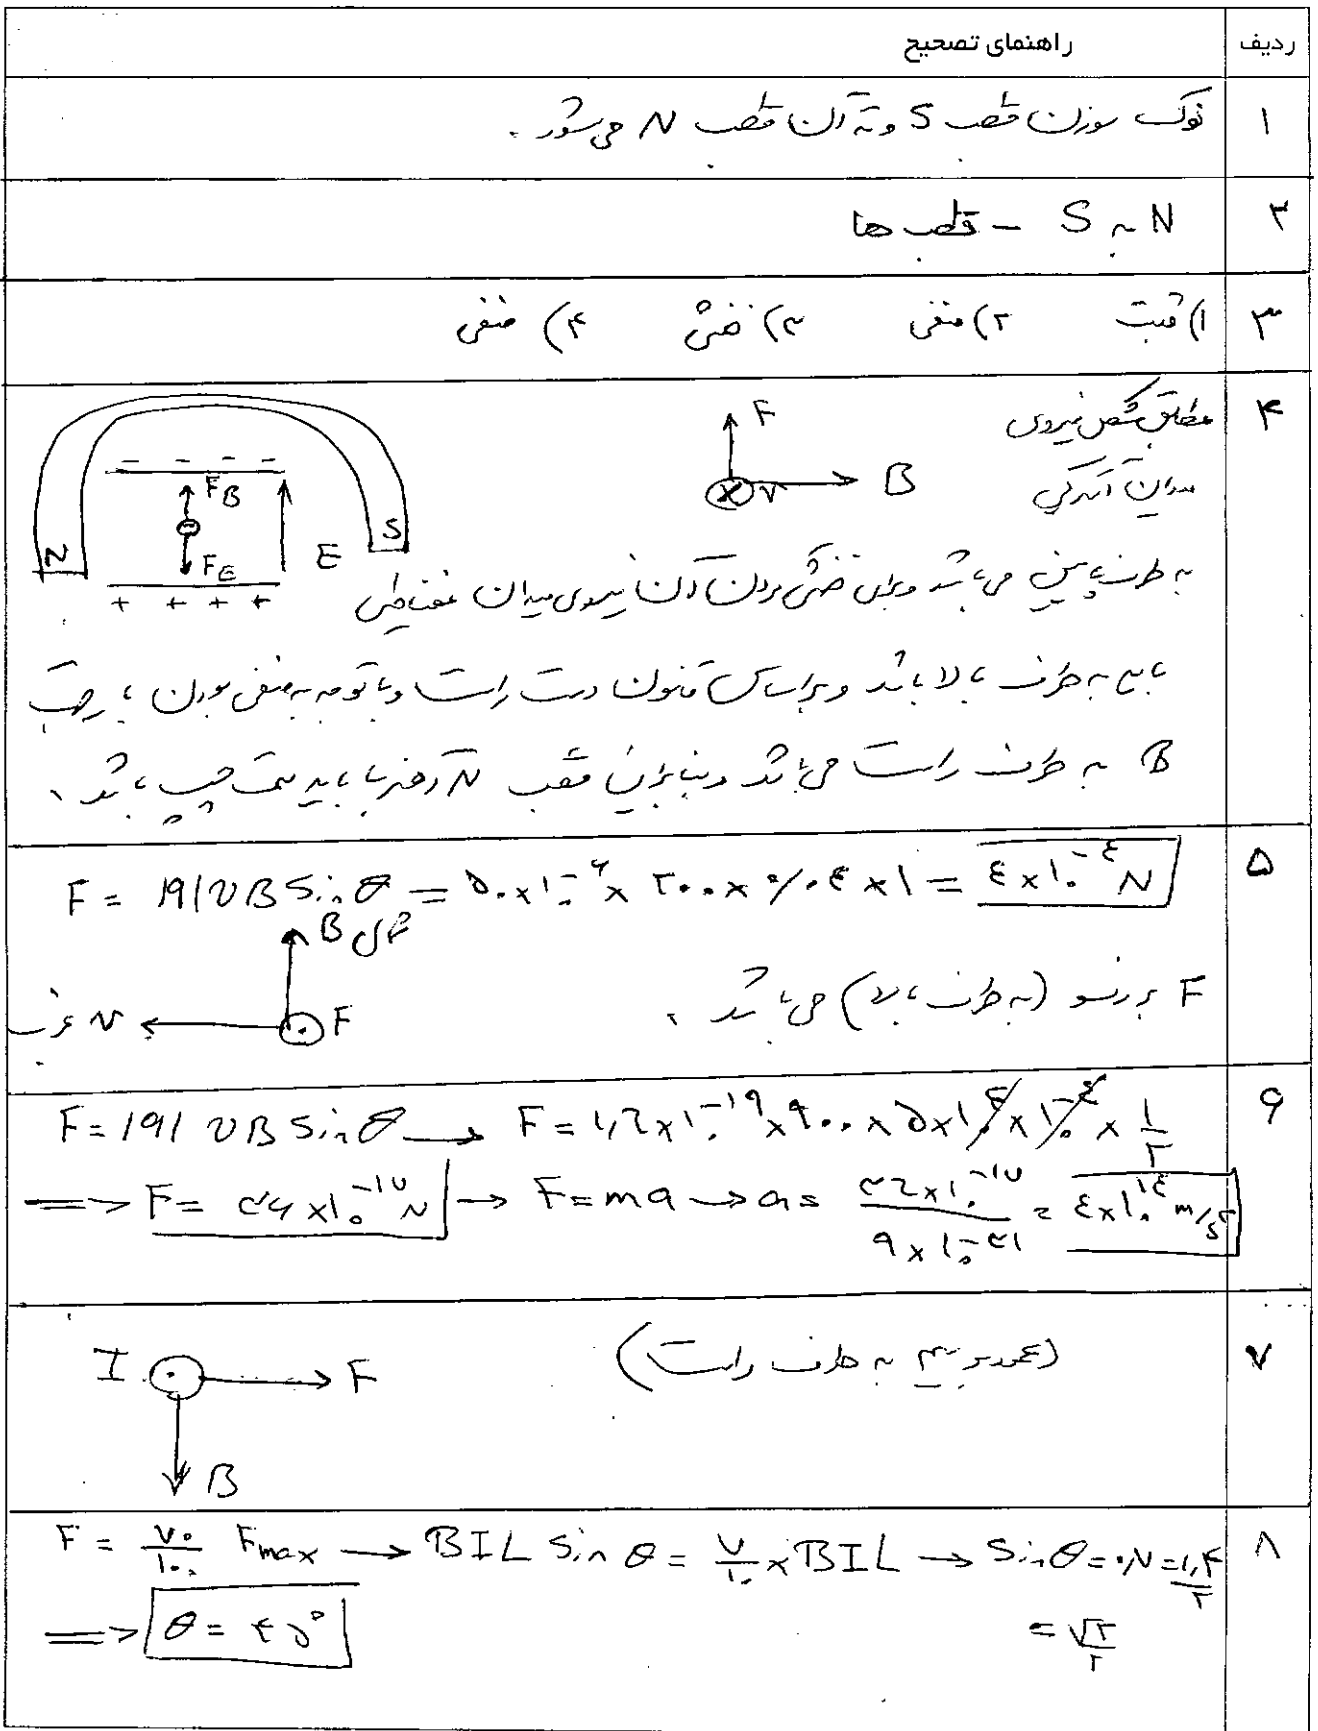 ردیف راهنمای تصحیح
۱ نوک سوزن قطب S و ته آن قطب N می‌شود.
۲ N به S – قطب ها
۳ ۱) مثبت ۲) منفی ۳) خنثی ۴) منفی
۴ مطابق شکل نیروی
میدان الکتریکی
F
B
V
- - - -
F_B
F_E
E
N
S
+ + + +
به طرف پایین می‌باشد و برای خنثی کردن آن نیروی میدان مغناطیسی
باید به طرف بالا باشد و براساس قانون دست راست و با توجه به منفی بودن بار جهت
B به طرف راست می‌باشد و بنابراین قطب N آهنربا باید سمت چپ باشد.
۵ F = |q|vB Sin θ = ۵۰×۱۰^-۶ × ۲۰۰ × ۰/۰۴ × ۱ = ۴×۱۰^-۴ N
شمال B
غرب v F
F برونسو (به طرف بالا) می‌باشد.
۶ F = |q| vB Sin θ → F = ۱,۶×۱۰^-۱۹ × ۹۰۰ × ۵×۱۰^۴ × ۱۰^-۴ × ۱/۲
=> F = ۳۶×۱۰^-۱۷ N → F = ma → a = ۳۶×۱۰^-۱۷ / ۹×۱۰^-۳۱ = ۴×۱۰^۱۴ m/s²
۷ (عمود بر سیم به طرف راست)
I F
B
۸ F = ۷۰/۱۰۰ Fmax → BIL Sin θ = ۷/۱۰ × BIL → Sin θ = ۰,۷ = ۱,۴/۲
= √۲/۲
=> θ = ۴۵°